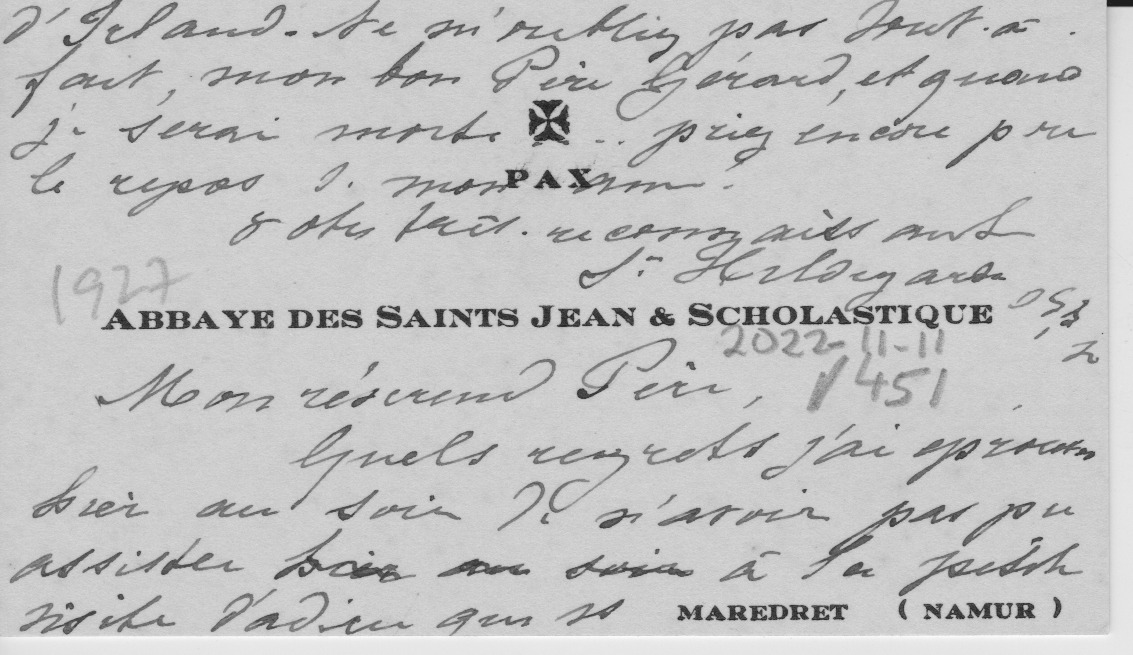 d'Irland. Ne m'oubliez pas tout-à-
fait, mon bon Père Gérard, et quand
je serai morte ... priez encore pour
le repos de mon âme!
PAX
Votre très reconnaissante
Sr Hildegarde
1927
OSB
ABBAYE DES SAINTS JEAN & SCHOLASTIQUE
2022-11-11
1451
Mon révérend Père,
Quels regrets j'ai eprouvés
hier au soir de n'avoir pas pu
assister hier au soir à la petite
visite d'adieu que vs
MAREDRET ( NAMUR )